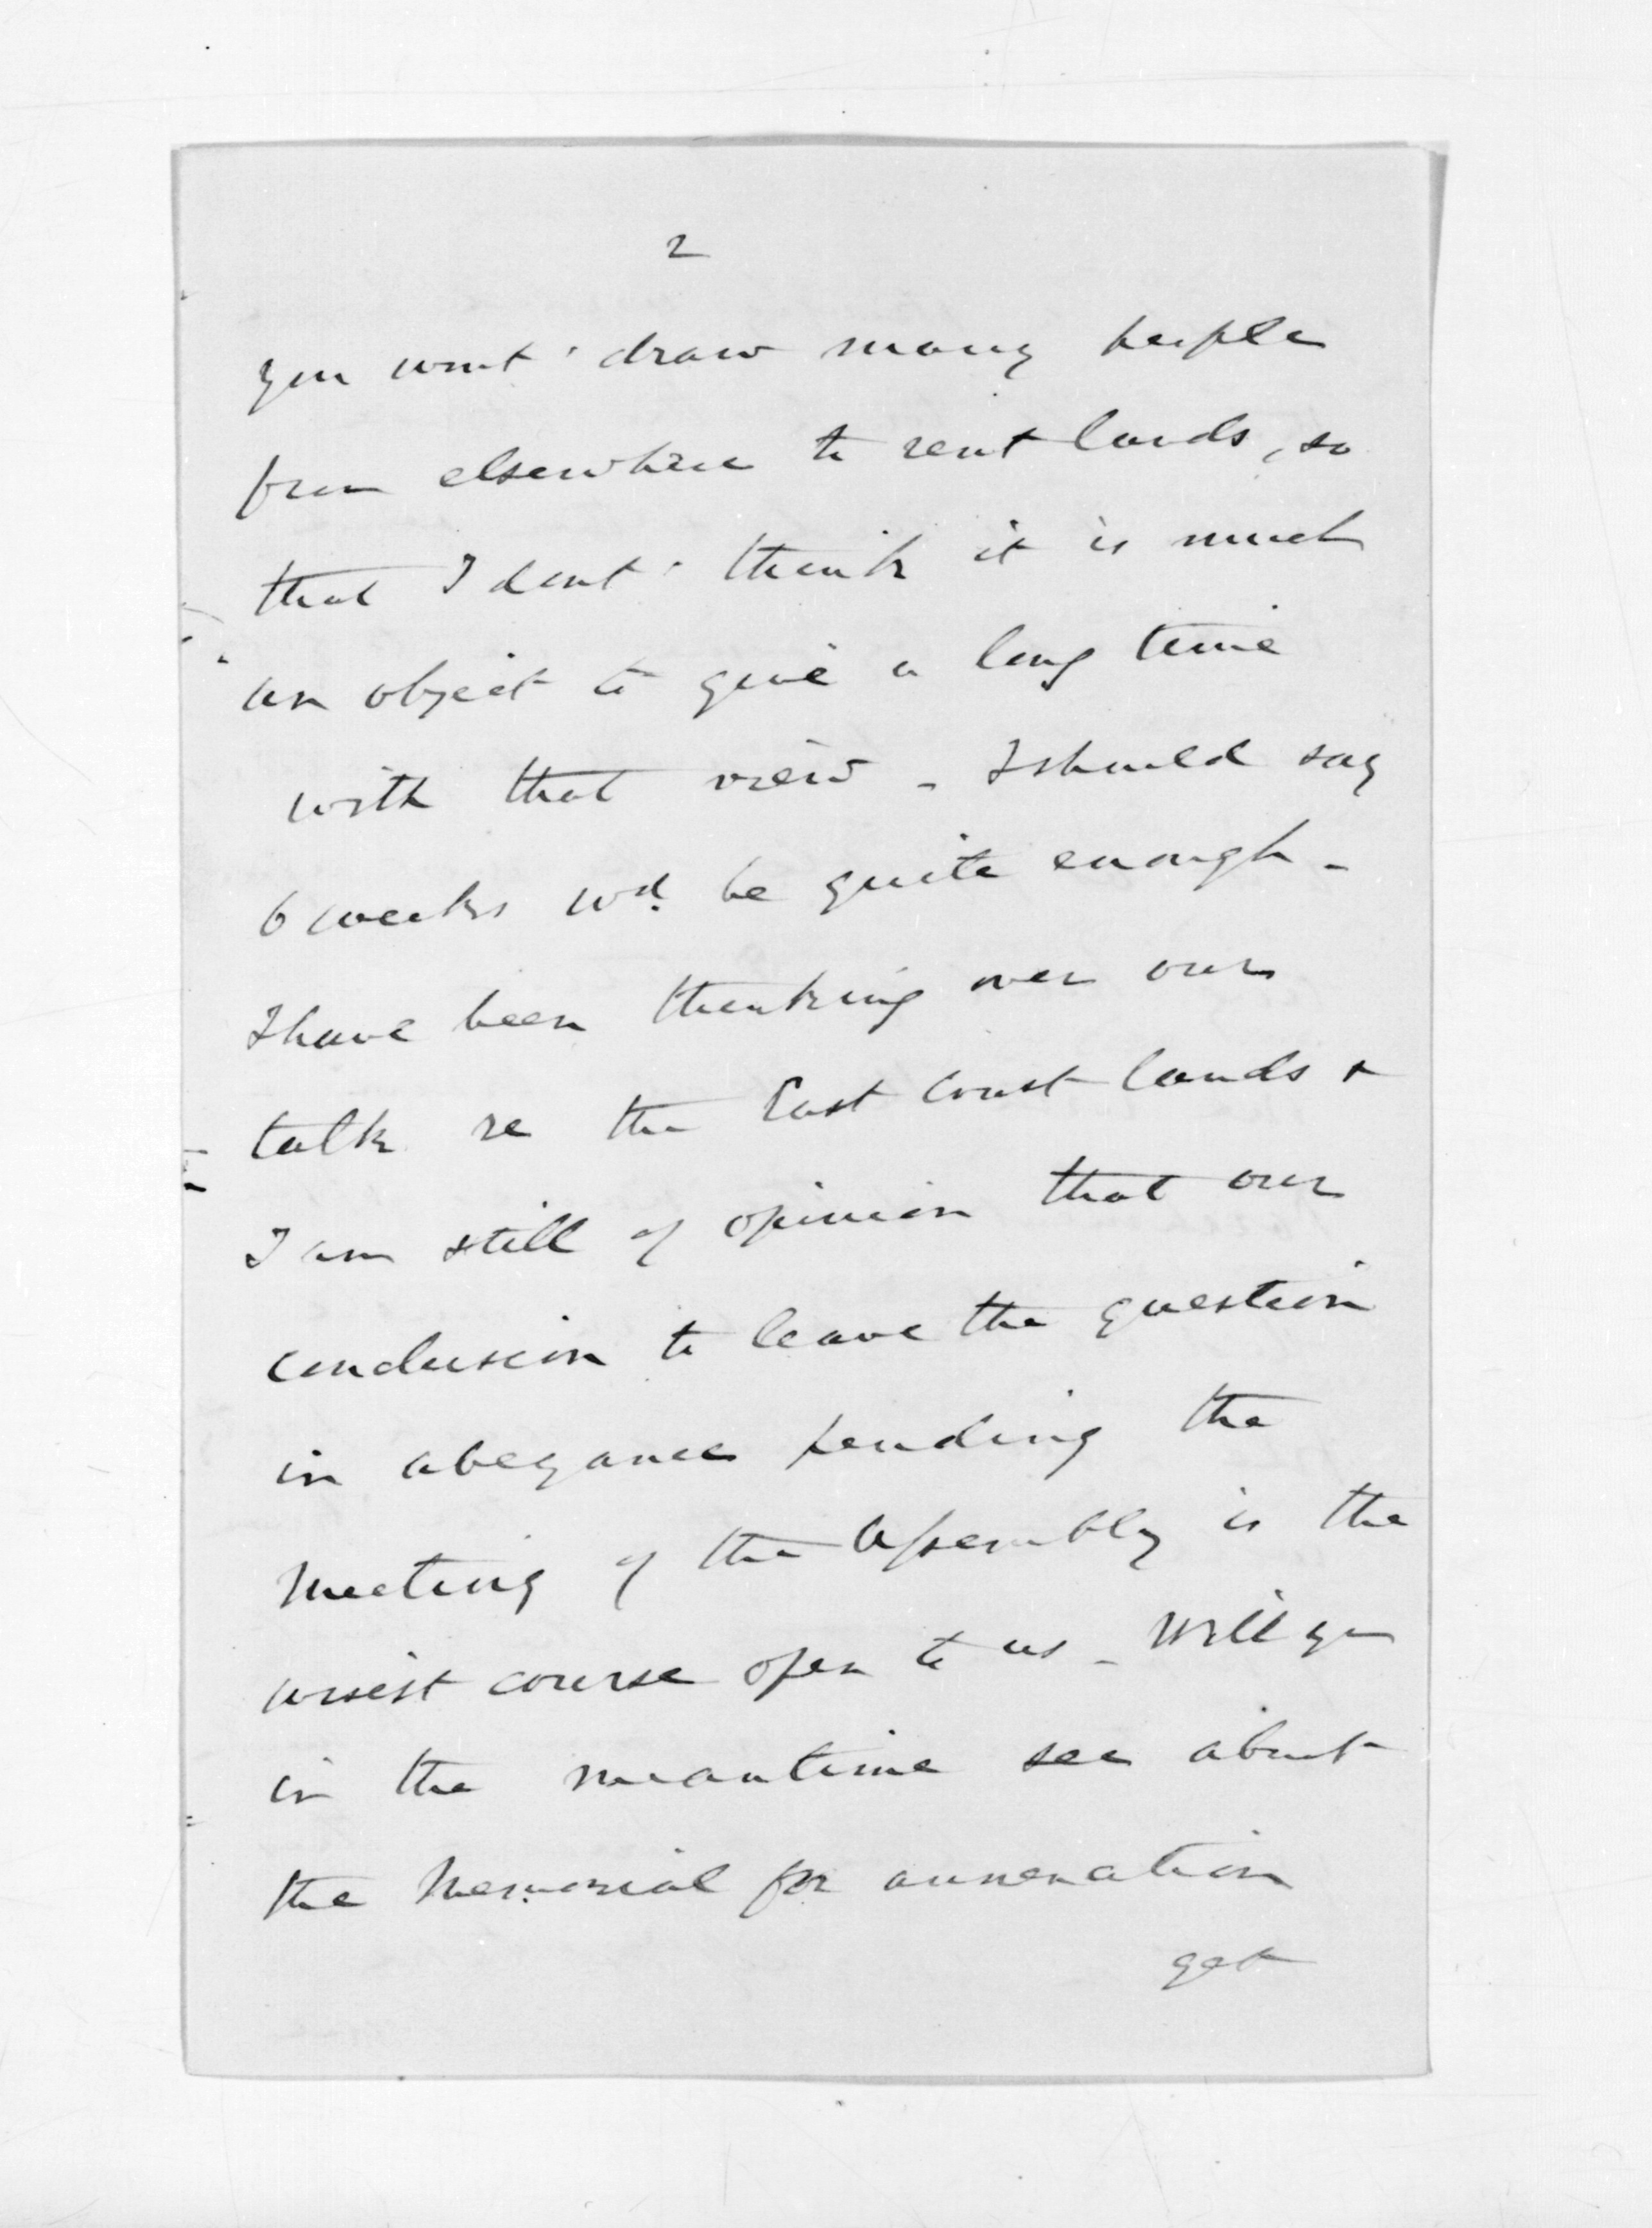 2
you wont' draw many people
from elsewhere to rent lands, so
that I dont' think it is much
an object to give a long time
with that view - I should say
6 weeks wd. be quite enough -
I have been thinking over our
talk re the East Coast lands &
I am still of opinion that our
conclusion to leave the question
in abeyance pending the
meeting of the Assembly is the
wisest course open to us - Will you
in the meantime see about
the Memorial for annexation
get